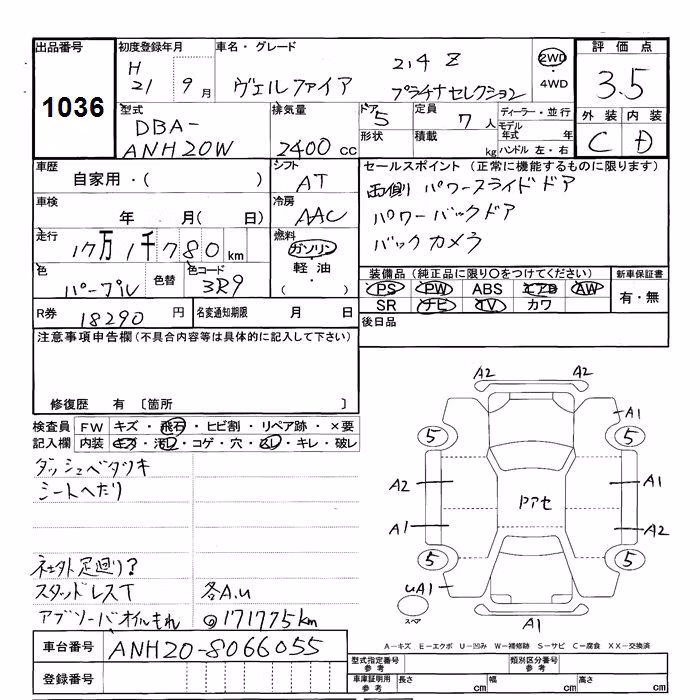 出品番号
1036
初度登録年月
H
21 9月
車名・グレード
ヴェルファイア
2.4 Z
プラチナセレクション
2WD
・4WD
評価点
3.5
外装 内装
C D
型式
DBA-
ANH20W
排気量
2400cc
ドア
5
定員
7人
ディーラー・並行
モデル
年式 年
形状
積載
kg
ハンドル 左・右
車歴
自家用・( )
シフト
AT
セールスポイント (正常に機能するものに限ります)
両側パワースライドドア
パワーバックドア
バックカメラ
車検
年 月( 日)
冷房
AAC
走行
17万1千780km
燃料
ガソリン
軽油
・( )
色
パープル
色替
色コード
3R9
装備品 (純正品に限り〇をつけてください)
新車保証書
PS PW ABS エアB AW
SR ナビ TV カワ
有・無
R券
18290円
名変通知期限 月 日
後日品
注意事項申告欄 (不具合内容等は具体的に記入して下さい)
修復歴 有 〔箇所 〕
検査員
記入欄
FW キズ・飛石・ヒビ割・リペア跡・×要
内装 キズ・汚レ・コゲ・穴・スレ・キレ・破レ
ダッシュベタツキ
シートへたり
社外足廻り?
スタッドレスT 各A.u
アブソーバオイルもれ @171775km
車台番号
ANH20-8066055
登録番号
A2 A2
A1
5 5
A2 A1
ドアセ
A1 A2
5 5
uA1
スペア
A1
A-キズ E-エクボ U-凹み W-補修跡 S-サビ C-腐食 XX-交換済
型式指定番号
参考
類別区分番号
参考
車庫証明用
参考
長さ cm 幅 cm 高さ cm